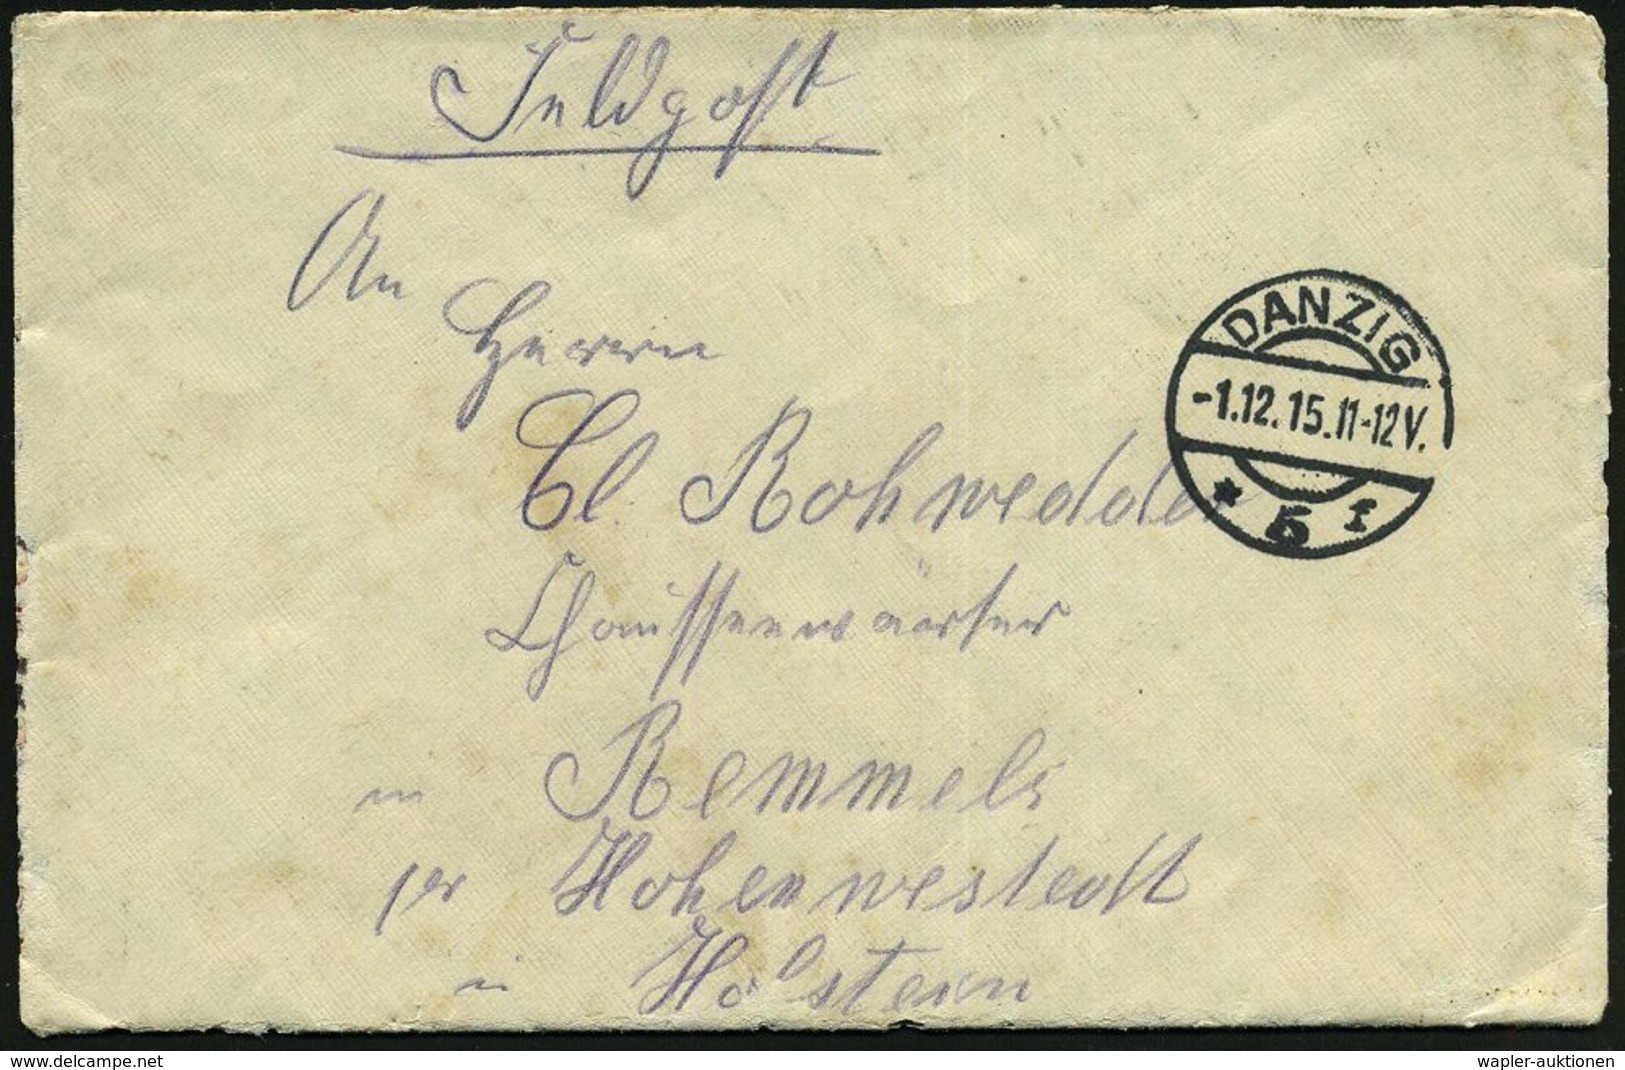 Feldpost
An
Herrn
DANZIG
-1.12.15.11-12V.
* 5 f
Cl. Rohwedder
Chausseewärter
in Remmels
per Hohenwestedt
in Holstein
www.delcampe.net
wapler-auktionen